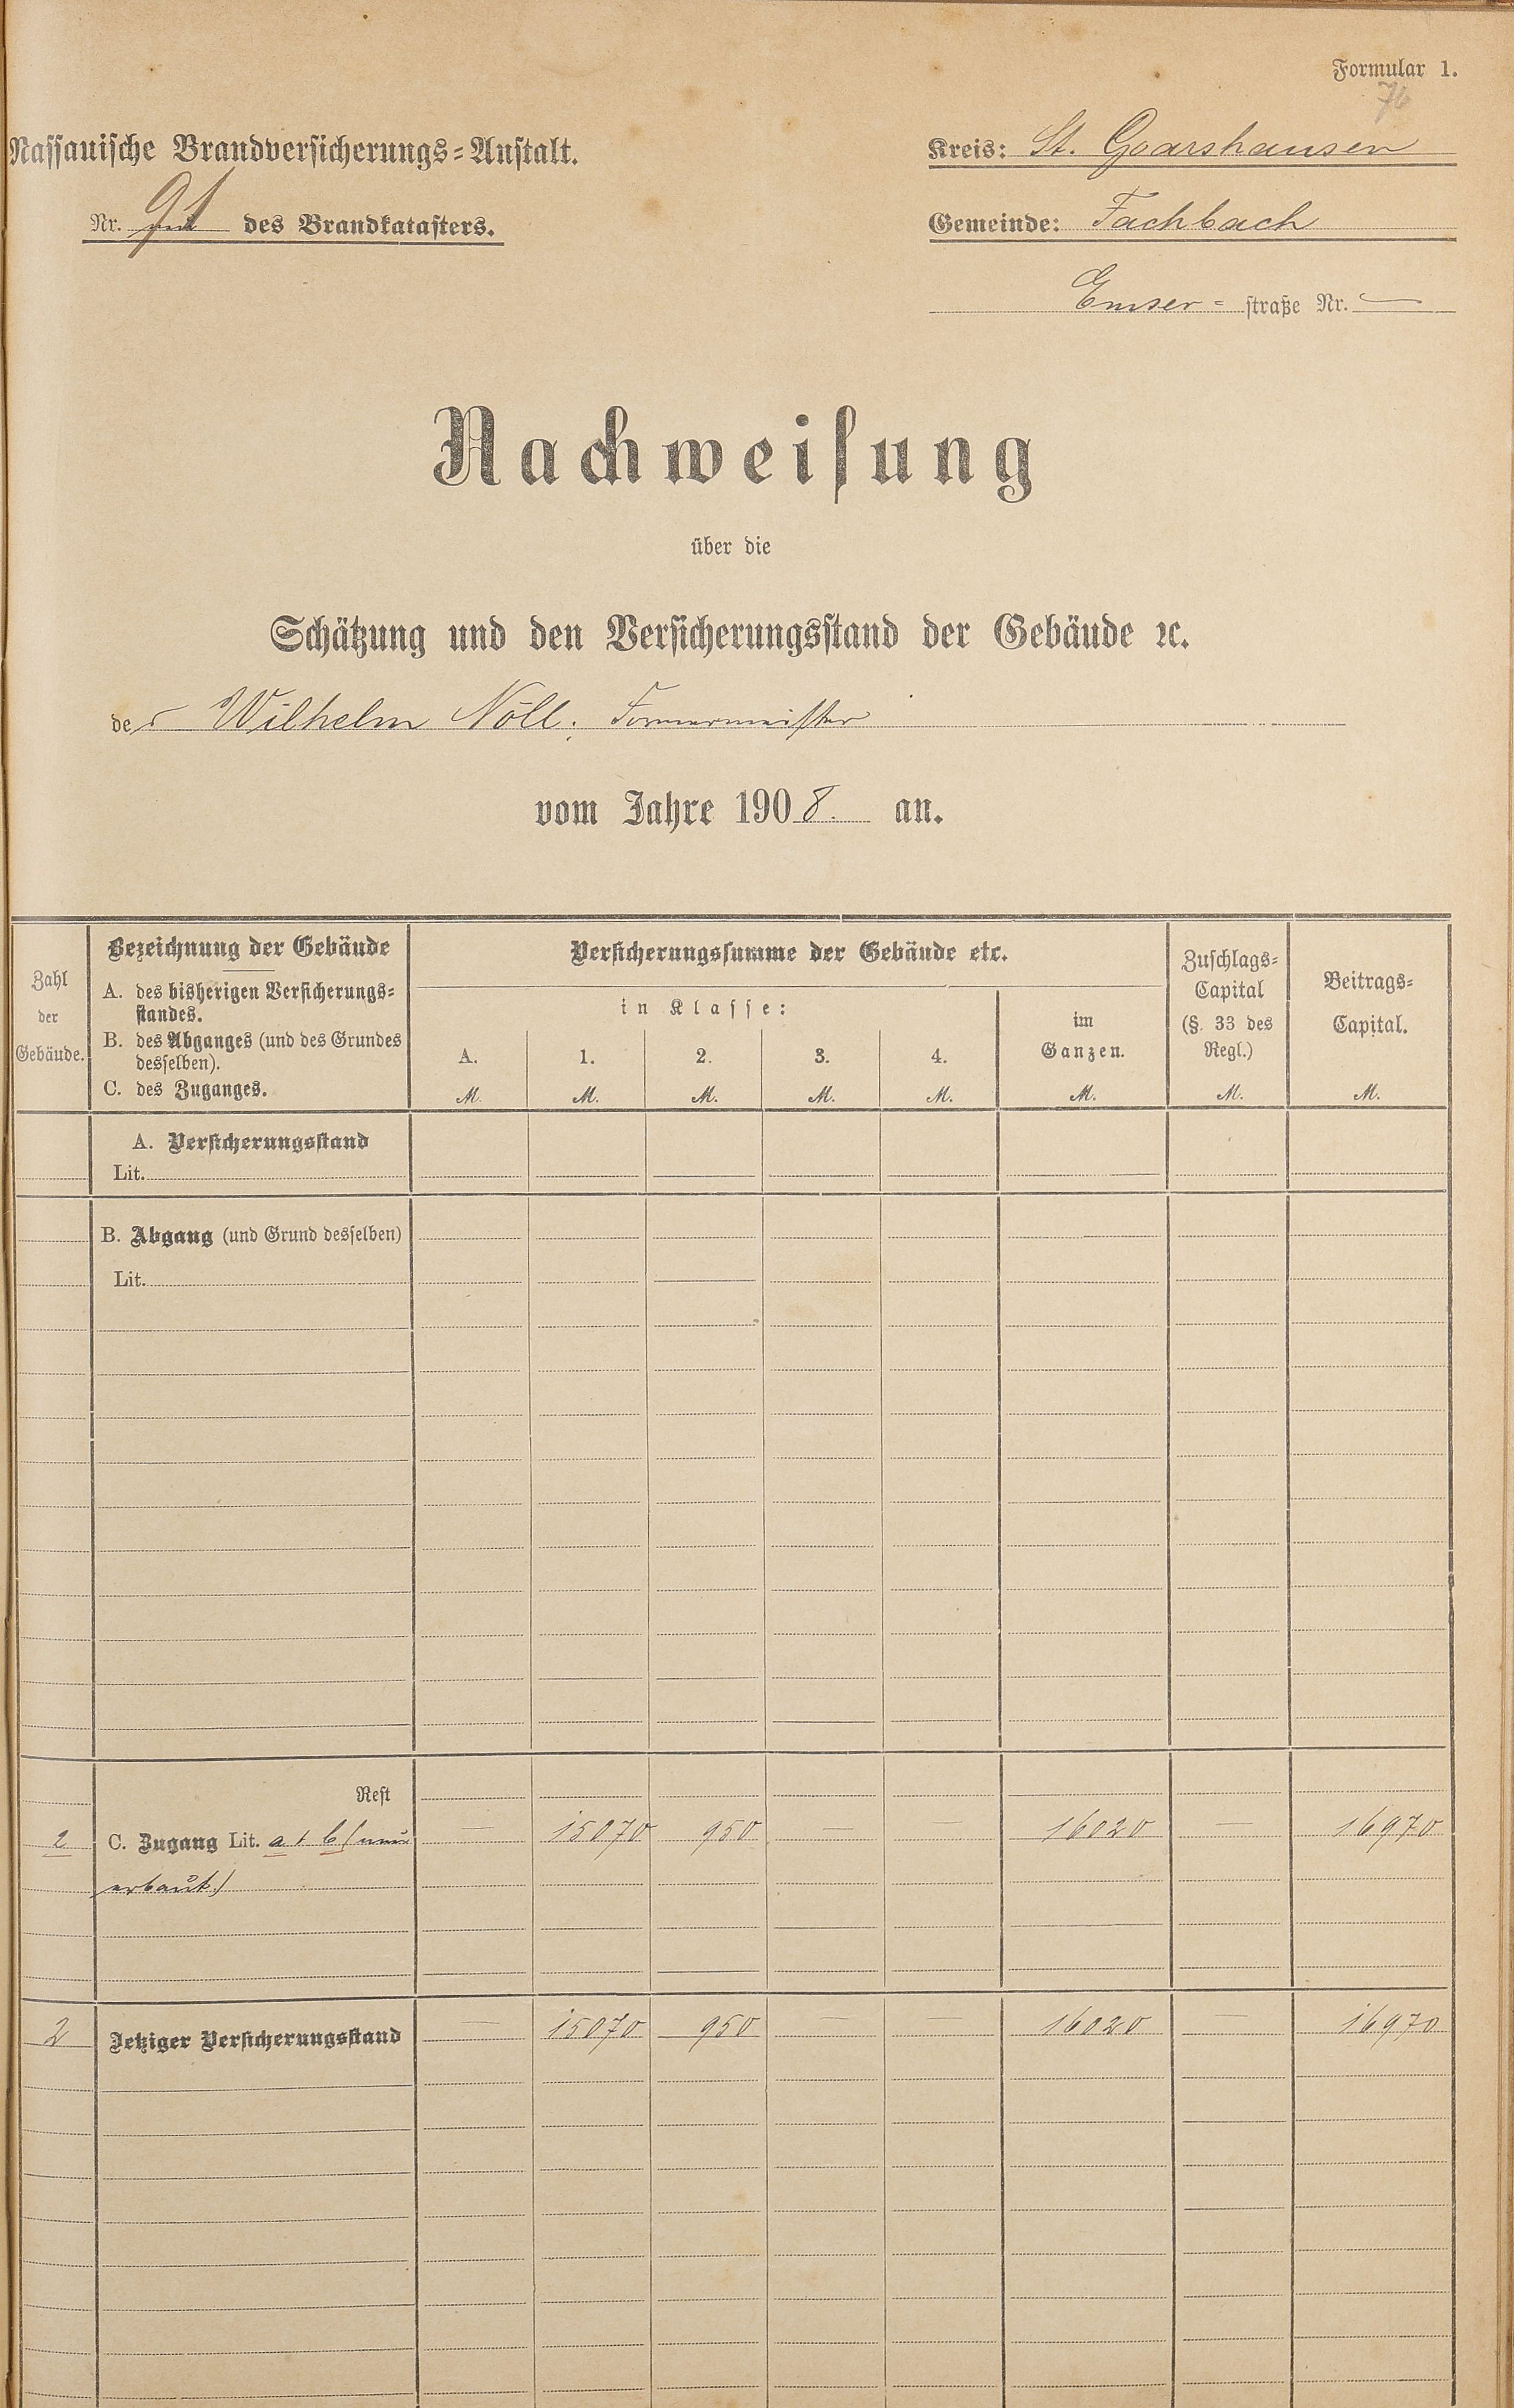 Formular 1.
76
Nassauische Brandversicherungs-Anstalt.
Kreis: St. Goarshausen
Nr. 91 des Brandkatasters.
Gemeinde: Fachbach
Emser-straße Nr. —
Nachweisung
über die
Schätzung und den Versicherungsstand der Gebäude ꝛc.
des Wilhelm Nöll, Formermeister
vom Jahre 1908. an.
Zahl der Gebäude.
Bezeichnung der Gebäude
A. des bisherigen Versicherungs-
standes.
B. des Abganges (und des Grundes
desselben).
C. des Zuganges.
Versicherungssumme der Gebäude etc.
in Klasse:
A. 1. 2. 3. 4.
im
Ganzen.
Zuschlags-
Capital
(§. 33 des
Regl.)
Beitrags-
Capital.
M. M. M. M. M. M. M. M.
A. Versicherungsstand
Lit.
B. Abgang (und Grund desselben)
Lit.
Rest
2 C. Zugang Lit. a, b (neu — 15070 950 — — 16020 — 16970
erbaut.)
2 Jetziger Versicherungsstand — 15070 950 — — 16020 — 16970